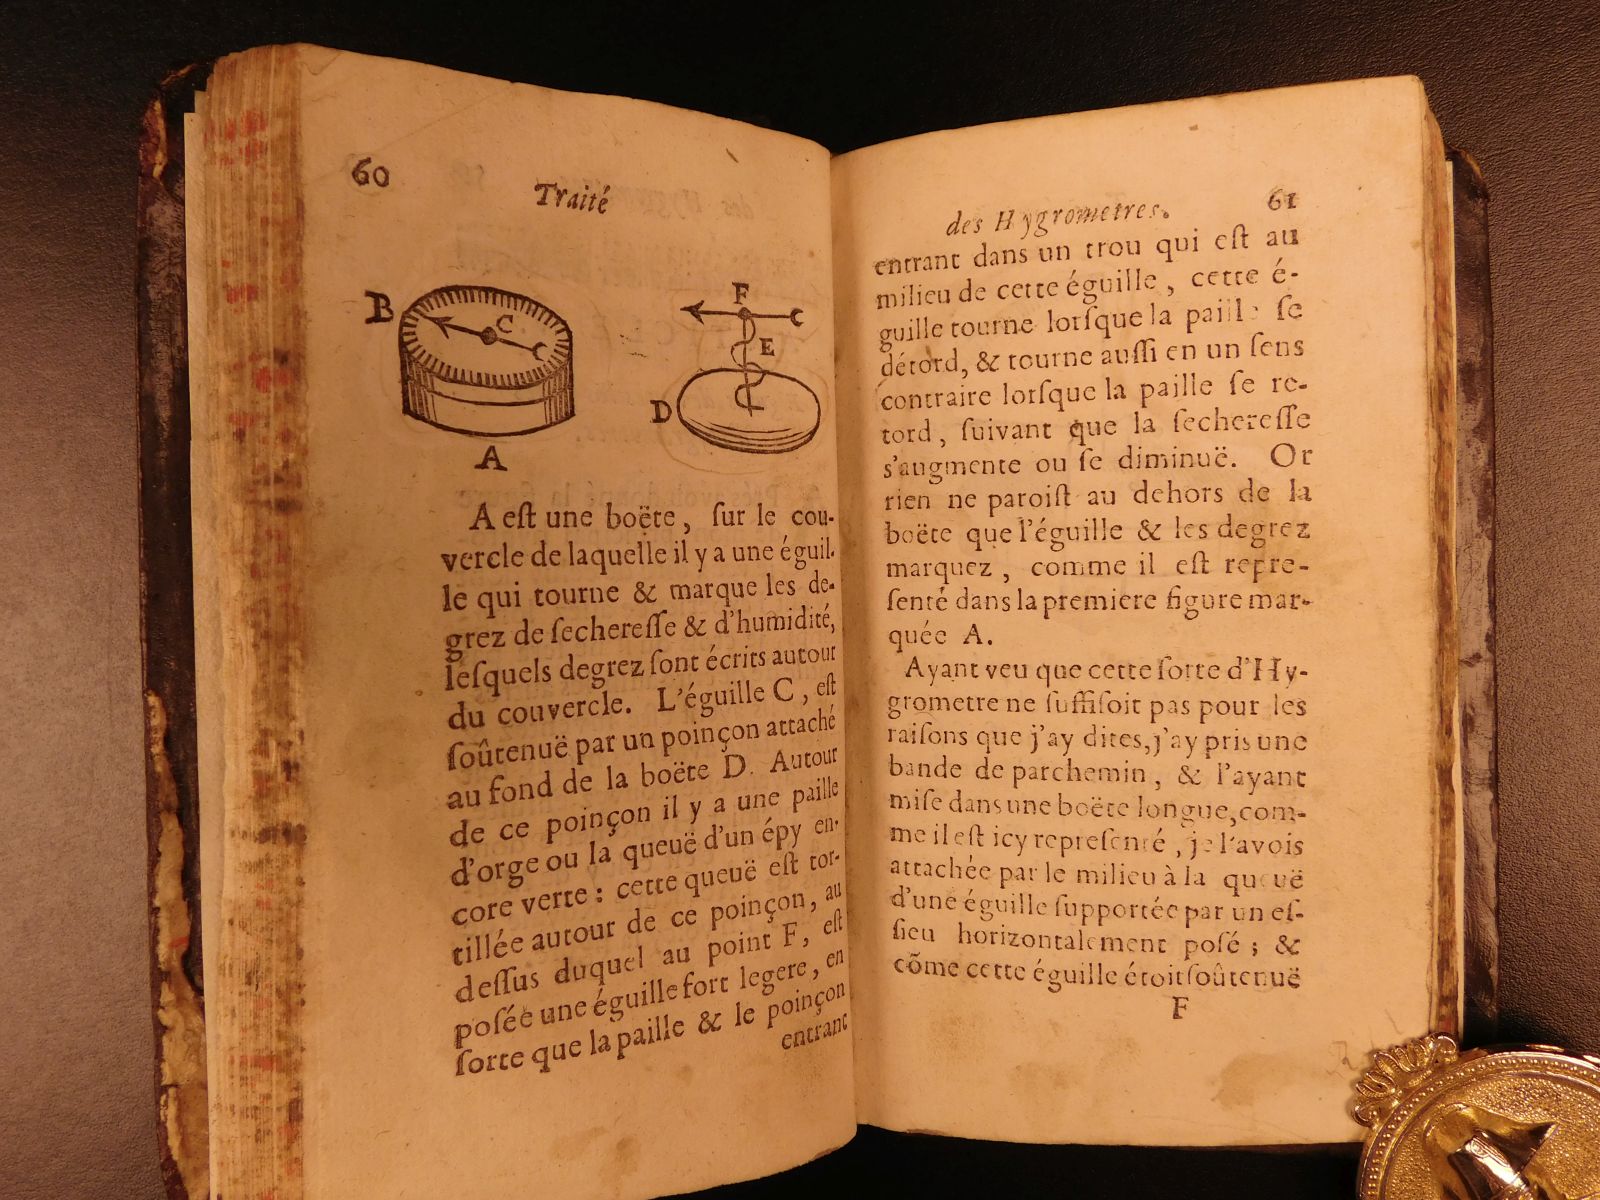 60
Traité
B
C
A
F
E
D
A eſt une boëte, ſur le cou-
vercle de laquelle il y a une éguil-
le qui tourne & marque les de-
grez de ſechereſſe & d'humidité,
leſquels degrez ſont écrits autour
du couvercle. L'éguille C, eſt
ſoûtenuë par un poinçon attaché
au fond de la boëte D. Autour
de ce poinçon il y a une paille
d'orge ou la queuë d'un épy en-
core verte : cette queuë eſt tor-
tillée autour de ce poinçon, au
deſſus duquel au point F, eſt
poſée une éguille fort legere, en
ſorte que la paille & le poinçon
entrant
des Hygrometres. 61
entrant dans un trou qui eſt au
milieu de cette éguille, cette é-
guille tourne lorſque la paille ſe
détord, & tourne auſſi en un ſens
contraire lorſque la paille ſe re-
tord, ſuivant que la ſechereſſe
s'augmente ou ſe diminuë. Or
rien ne paroiſt au dehors de la
boëte que l'éguille & les degrez
marquez, comme il eſt repre-
ſenté dans la premiere figure mar-
quée A.
Ayant veu que cette ſorte d'Hy-
grometre ne ſuffiſoit pas pour les
raiſons que j'ay dites, j'ay pris une
bande de parchemin, & l'ayant
miſe dans une boëte longue, com-
me il eſt icy repreſenté, je l'avois
attachée par le milieu à la queuë
d'une éguille ſupportée par un eſ-
ſieu horizontalement poſé ; &
cõme cette éguille étoit ſoûtenuë
F